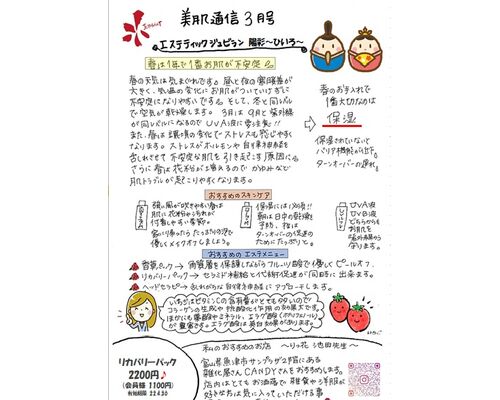 美肌通信3月号
エステティックジュピラン 陽彩〜ひいろ〜
春は1年で1番お肌が不安定
春の天気は気まぐれです。昼と夜の寒暖差が
大きく、気温の変化にお肌がついていけずに
不安定になりやすいです。そして、冬と同レベル
で空気が乾燥します。3月は9月と紫外線
が同レベルになるのでUVA波に要注意!!
また、春は環境の変化でストレスも感じやすく
なります。ストレスがホルモンや自律神経
を乱れさせて不安定な肌を引き起こす原因に
さらに春は花粉が増えるのでかゆみなど
肌トラブルが起こりやすくなります。
春のお手入れで
1番大切なのは
保湿
保湿されていないと
バリア機能が低下。
ターンオーバーの遅れ。
おすすめのスキンケア
強い風が吹きやすい春は
肌に花粉やよごれが
付着しやすい季節。
保湿には
朝は日中の乾燥を
予防、夜は
ターンオーバーの促進の
ためにたっぷりと。
UVA波
UVB波
どちらからも
お肌を
紫外線から
守ります。
おすすめのエステメニュー
→ 角質層を保護しながらフルーツ酸で優しくピールオフ。
リカバリーパック → セラミド補給と代謝促進が同時に出来ます。
いちごはビタミンCの含有量が
コラーゲンの生成や抗酸化作用の効果大です。
ほかにも葉酸やミネラル、エラグ酸(ポリフェノール)
が豊富です。エラグ酸は美白効果があります。
私のおすすめのお店
リカバリーパック
2200円♪
(会員様 1100円)
有効期限 22.4.30
富山県魚津市サンプラザ2階にある
雑化屋さんCANDYさんをおすすめします。
店内はとてもお洒落で雑貨や洋服が
好きな方は気に入っていただける事